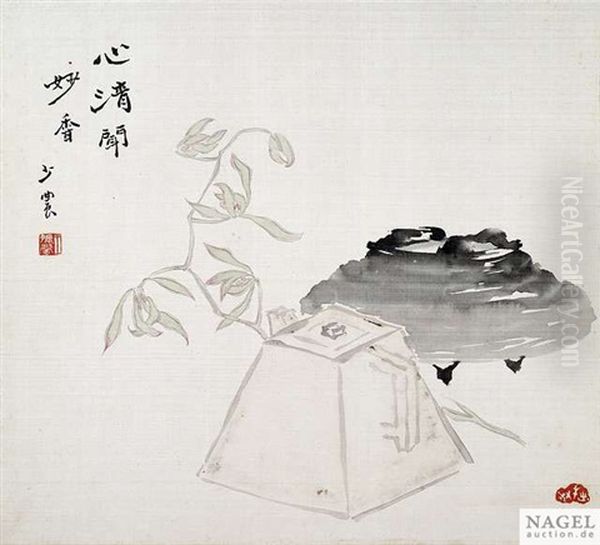 心清聞
妙香
少農
NiceArtGallery.com
NAGEL
auction.de